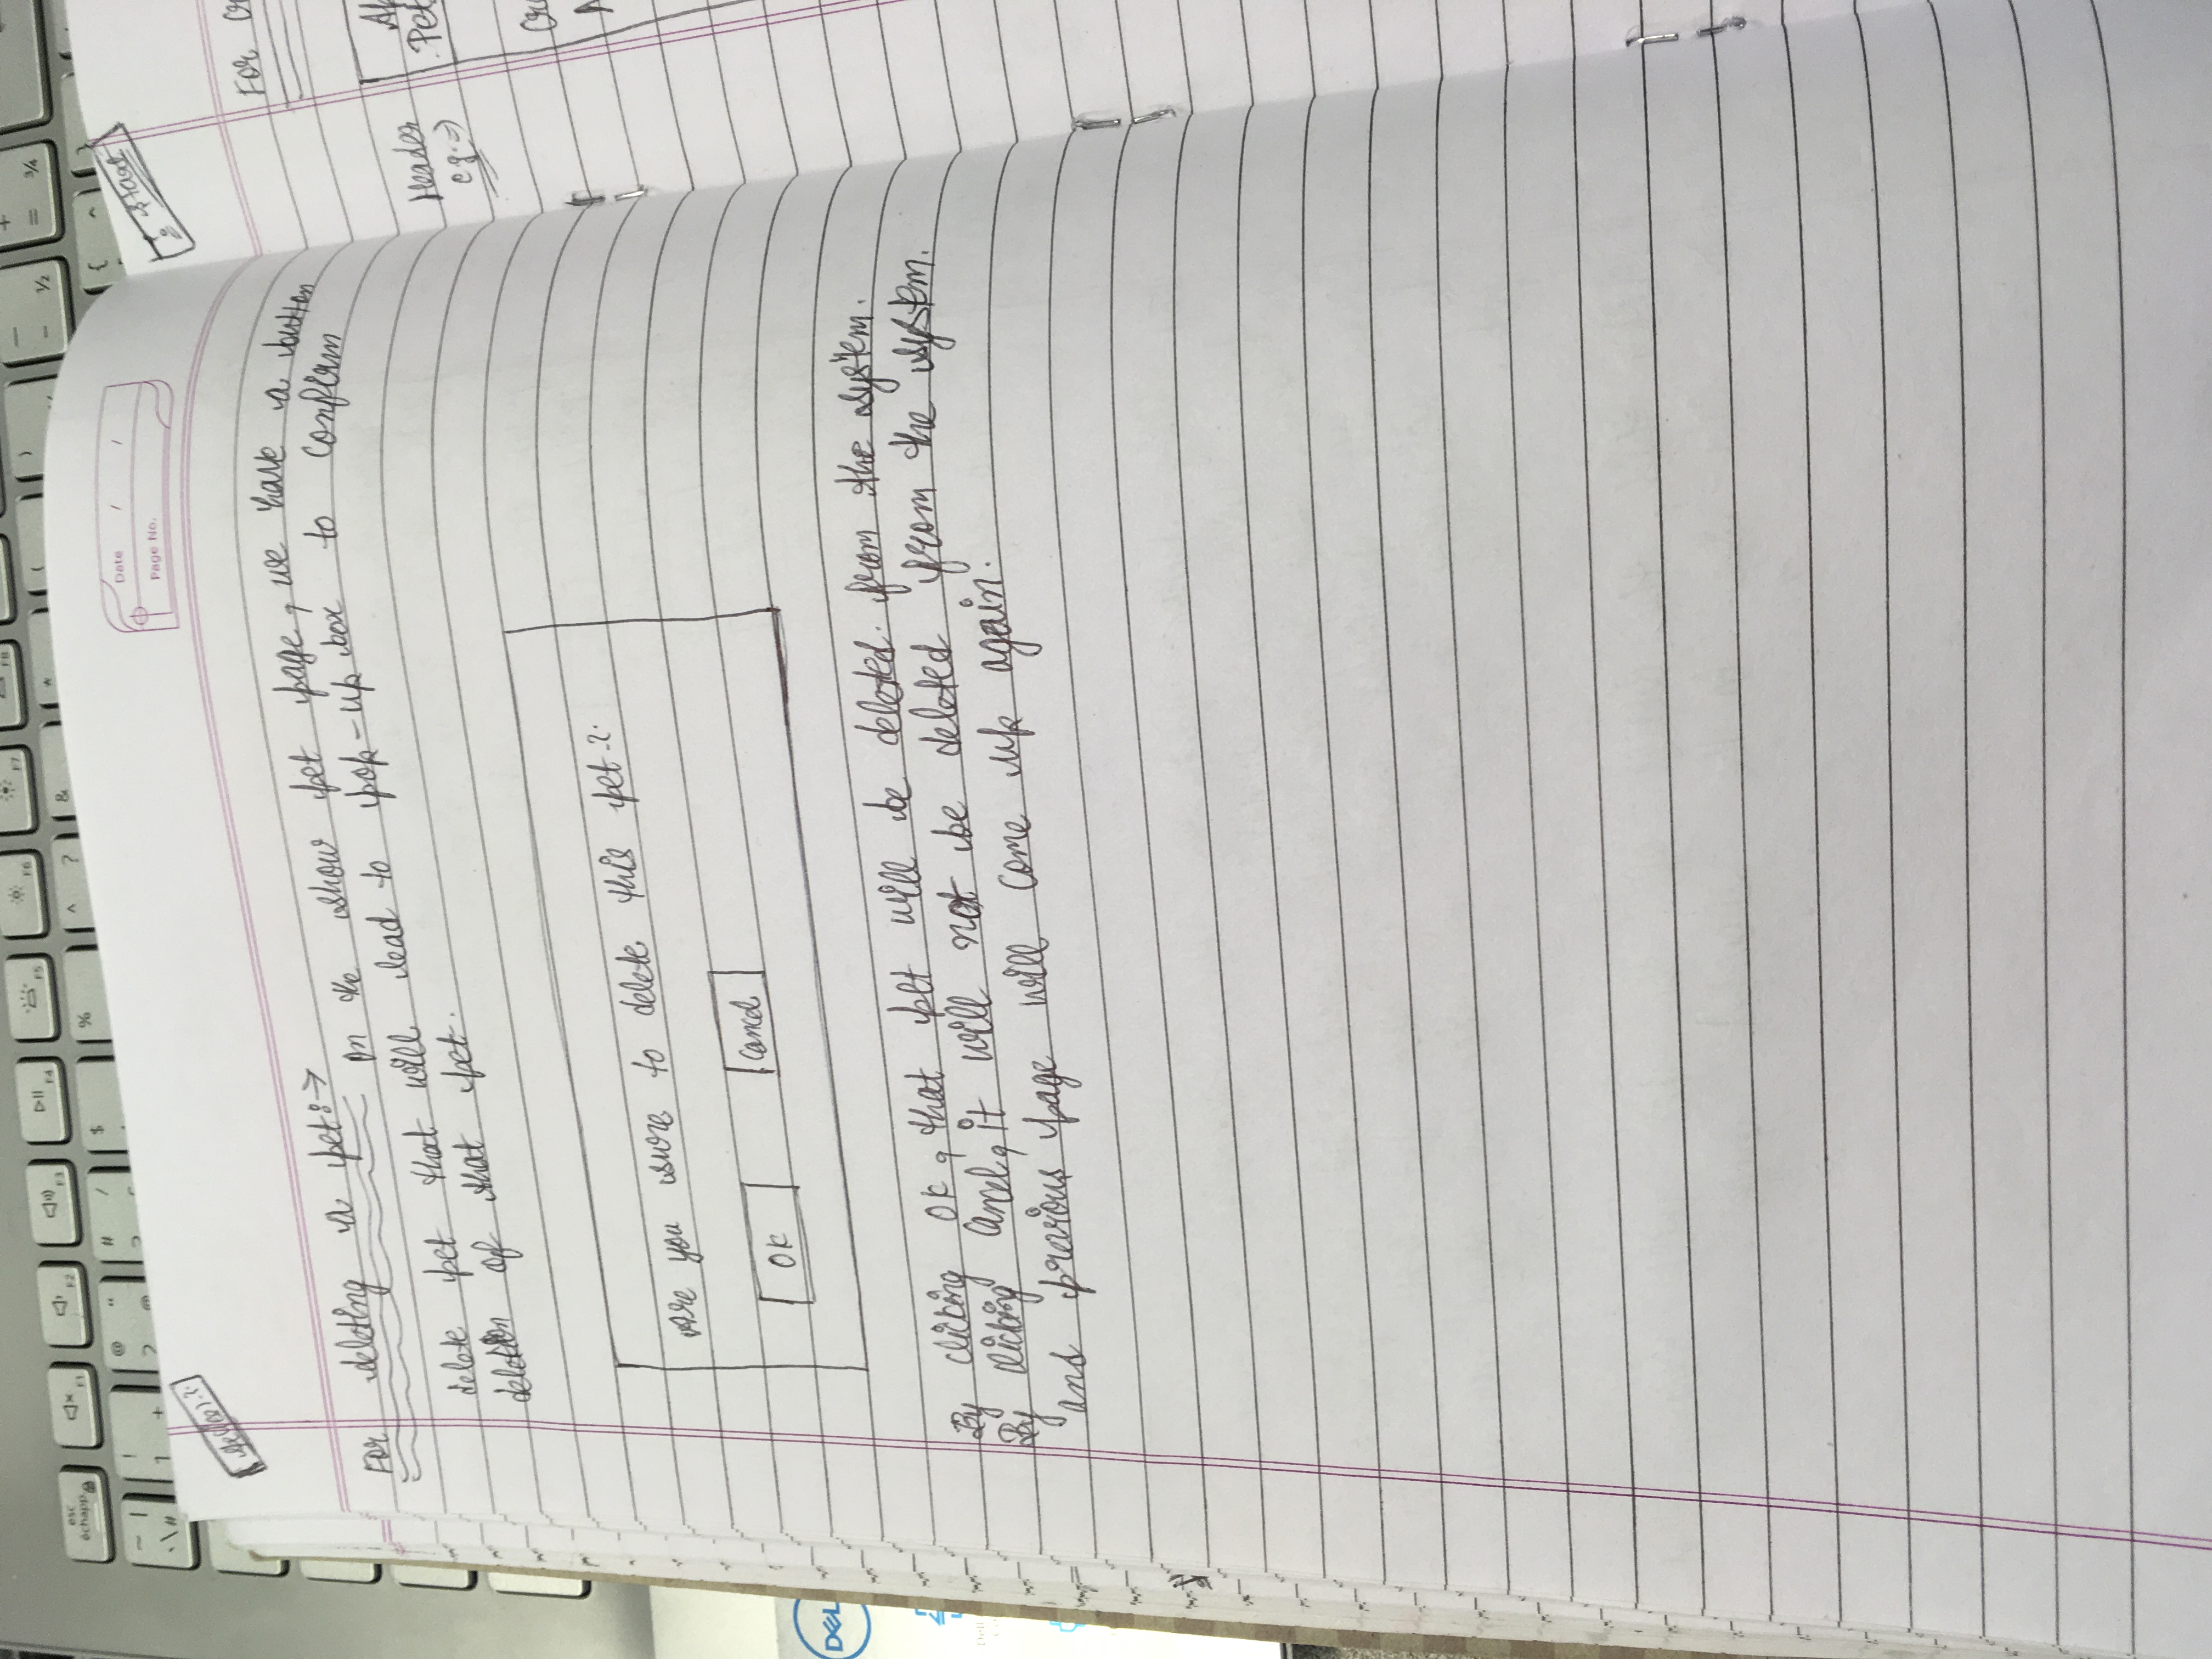 esc
échapp
F1
F2
F3
F4
F5
F6
F7
F8
Date / /
Page No.
For deleting a pet:→ In the show pet page, we have a button
delete pet that will lead to pop-up box to confirm
deletion of that pet.
Are you sure to delete this pet?
OK
Cancel
By clicking OK, that pet will be deleted. from the system.
By clicking Cancel, it will not be deleted from the system.
and previous page will come up again.
start
For Cr
Header
e.g.⇒
Pet
DELL
Dell